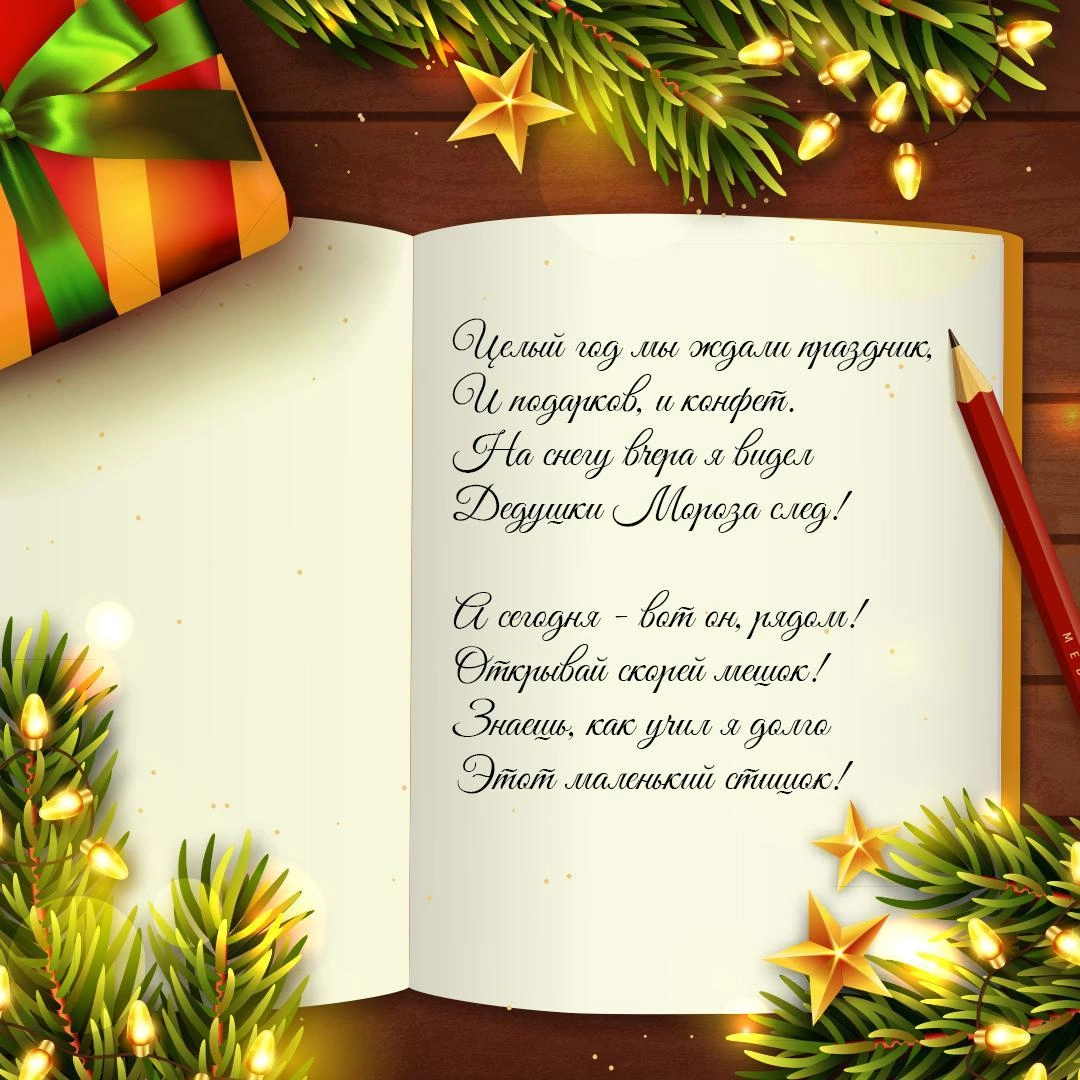 Целый год мы ждали праздник,
И подарков, и конфет.
На снегу вчера я видел
Дедушки Мороза след!
А сегодня - вот он, рядом!
Открывай скорей мешок!
Знаешь, как учил я долго
Этот маленький стишок!